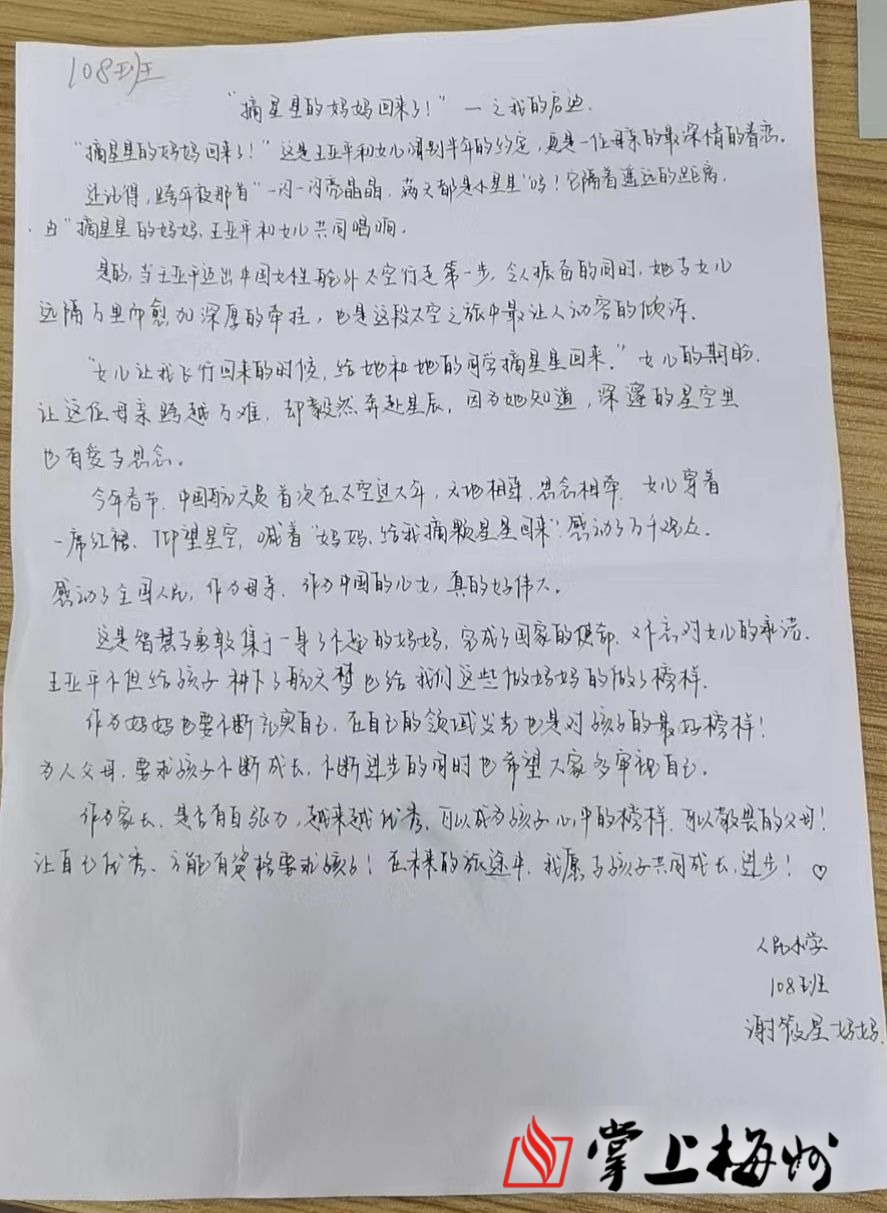 108班
“摘星星的妈妈回来了！” — 之我的启迪.
“摘星星的妈妈回来了！”这是王亚平和女儿阔别半年的约定,更是一位母亲的最深情的眷恋.
还记得,跨年夜那首“一闪一闪亮晶晶.满天都是小星星”吗！它隔着遥远的距离,
由“摘星星的妈妈,王亚平和女儿共同唱响.
是的,当王亚平迈出中国女性舱外太空行走第一步,令人振奋的同时,她与女儿
远隔万里而愈加深厚的牵挂,也是这段太空之旅中最让人动容的倾诉.
“女儿让我飞行回来的时候,给她和她的同学摘星星回来.”女儿的期盼.
让这位母亲跨越万难,却毅然奔赴星辰,因为她知道,深邃的星空里
也有爱与思念。
今年春节.中国航天员首次在太空过大年,天地相连.思念相牵.女儿穿着
一席红裙.仰望星空,喊着“妈妈.给我摘颗星星回来”.感动了万千观众.
感动了全国人民,作为母亲.作为中国的儿女,真的好伟大。
这是智慧与勇敢集于一身了不起的妈妈,完成了国家的使命.又不忘对女儿的承诺.
王亚平不但给孩子种下了航天梦也给我们这些做妈妈的做了榜样.
作为妈妈也要不断充实自己.在自己的领域发光也是对孩子的最好榜样！
为人父母.要求孩子不断成长.不断进步的同时也希望大家多审视自己.
作为家长.是否有自张力,越来越优秀.可以成为孩子心中的榜样.可以敬畏的父母！
让自己优秀、方能有资格要求孩子！在未来的旅途中.我愿与孩子共同成长.进步！♡
人民小学
108班
谢 星妈妈.
掌上梅州